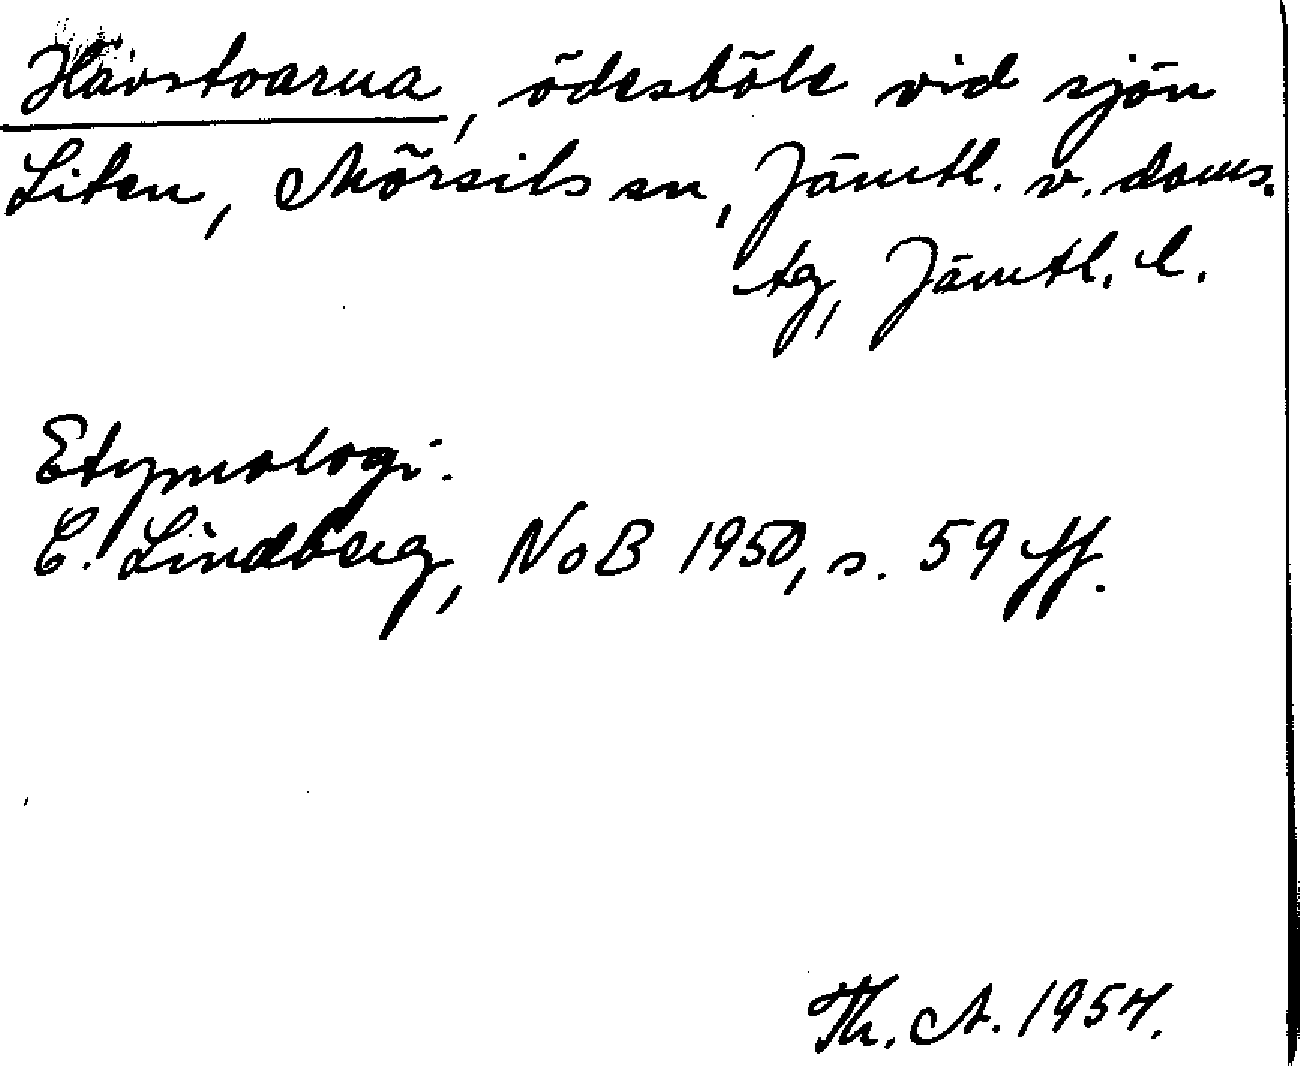 Hävstoarna, ödesböle vid sjön
Liten, Mörsils sn, Jämtl. v. doms.
tg, Jämtl. l.
Etymologi.
C. Lindberg, NoB 1950, s. 59 ff.
Th. A. 1954.